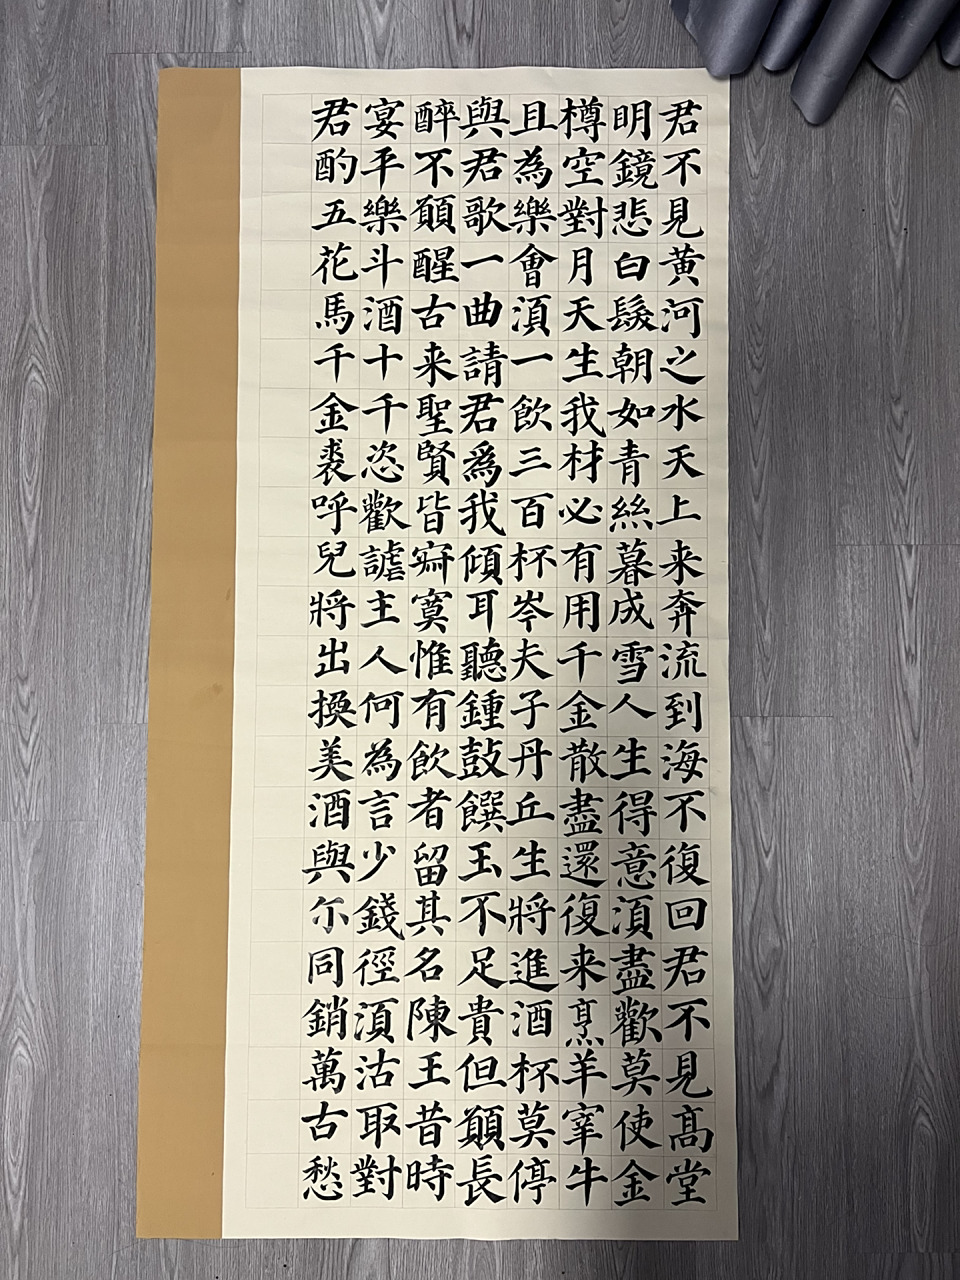 君不見黄河之水天上来奔流到海不復回君不見髙堂
明鏡悲白髮朝如青絲暮成雪人生得意湏盡歡莫使金
樽空對月天生我材必有用千金散盡還復来烹羊宰牛
且為樂會湏一飲三百杯岑夫子丹丘生將進酒杯莫停
與君歌一曲請君爲我傾耳聽鍾鼓饌玉不足貴但願長
醉不願醒古来聖賢皆寂寞惟有飲者留其名陳王昔時
宴平樂斗酒十千恣歡謔主人何為言少錢徑湏沽取對
君酌五花馬千金裘呼兒將出換美酒與尔同銷萬古愁